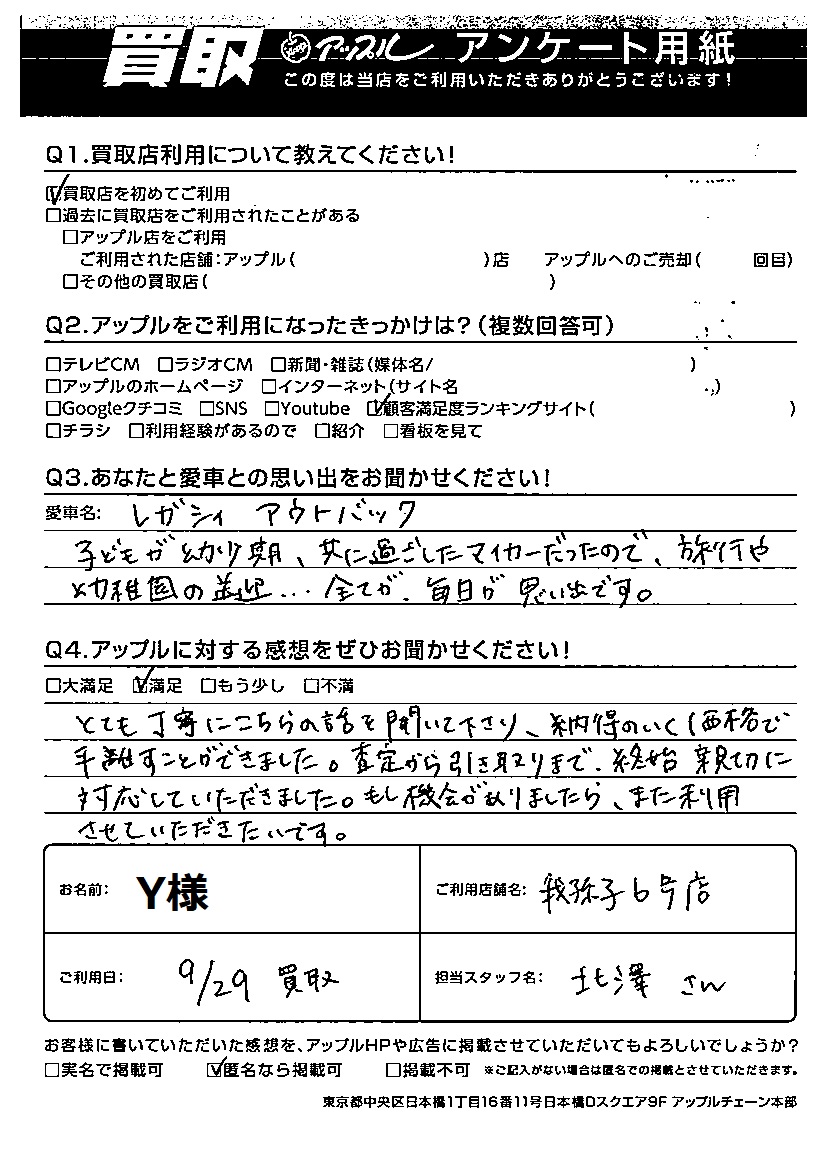 買取 Apple アップル アンケート用紙
この度は当店をご利用いただきありがとうございます!
Q1.買取店利用について教えてください!
☑買取店を初めてご利用
□過去に買取店をご利用されたことがある
□アップル店をご利用
ご利用された店舗:アップル( )店 アップルへのご売却( 回目)
□その他の買取店( )
Q2.アップルをご利用になったきっかけは?(複数回答可)
□テレビCM □ラジオCM □新聞・雑誌(媒体名/ )
□アップルのホームページ □インターネット(サイト名 )
□Googleクチコミ □SNS □Youtube ☑顧客満足度ランキングサイト( )
□チラシ □利用経験があるので □紹介 □看板を見て
Q3.あなたと愛車との思い出をお聞かせください!
愛車名: レガシィ アウトバック
子どもが幼少期、共に過ごしたマイカーだったので、旅行や
幼稚園の送迎... 全てが、毎日が思い出です。
Q4.アップルに対する感想をぜひお聞かせください!
□大満足 ☑満足 □もう少し □不満
とても丁寧にこちらの話を聞いて下さり、納得のいく価格で
手離すことができました。査定から引き取りまで、終始親切に
対応していただきました。もし機会がありましたら、また利用
させていただきたいです。
お名前: Y様 ご利用店舗名: 我孫子6号店
ご利用日: 9/29 買取 担当スタッフ名: 北澤 さん
お客様に書いていただいた感想を、アップルHPや広告に掲載させていただいてもよろしいでしょうか?
□実名で掲載可 ☑匿名なら掲載可 □掲載不可 ※ご記入がない場合は匿名での掲載とさせていただきます。
東京都中央区日本橋1丁目16番11号日本橋Dスクエア9F アップルチェーン本部